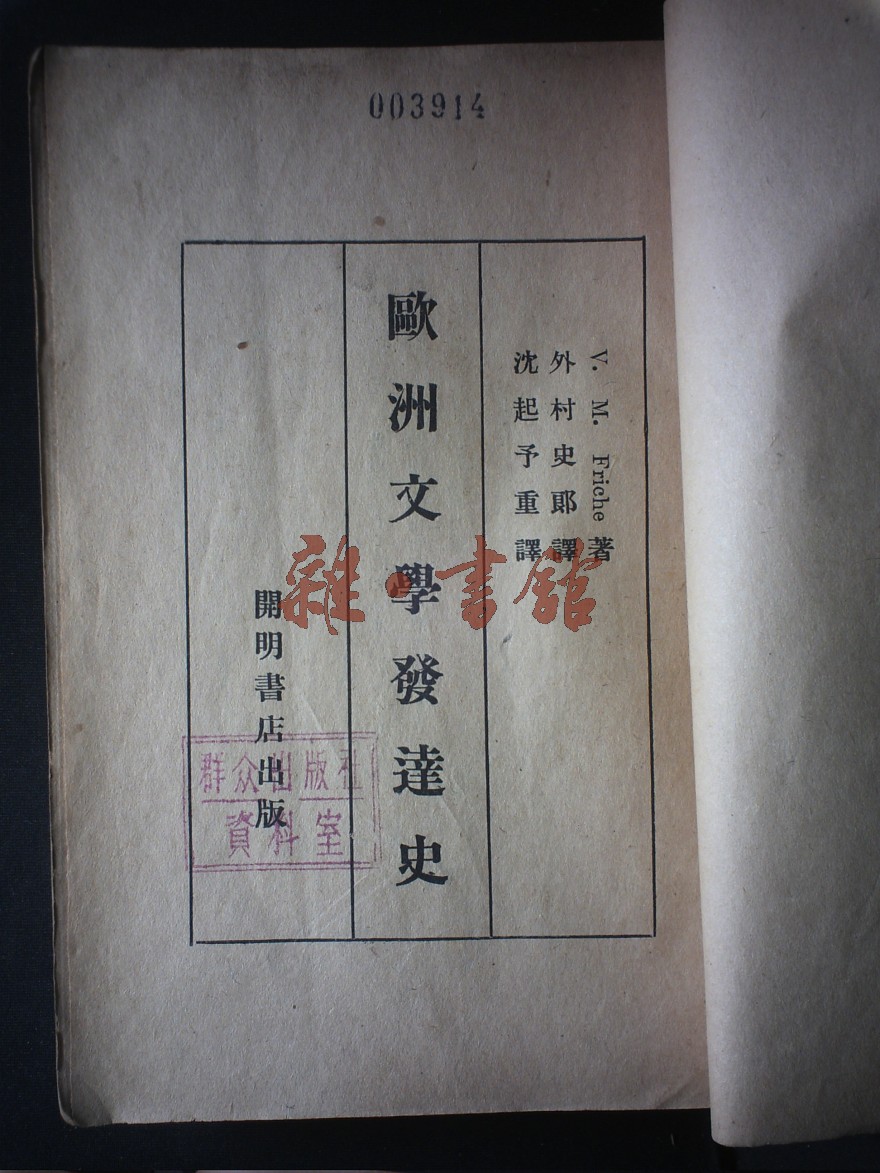 003914
V. M. Friche 著
外村史郎譯
沈起予重譯
歐洲文學發達史
開明書店出版
群众出版社
資料室
雜·書館